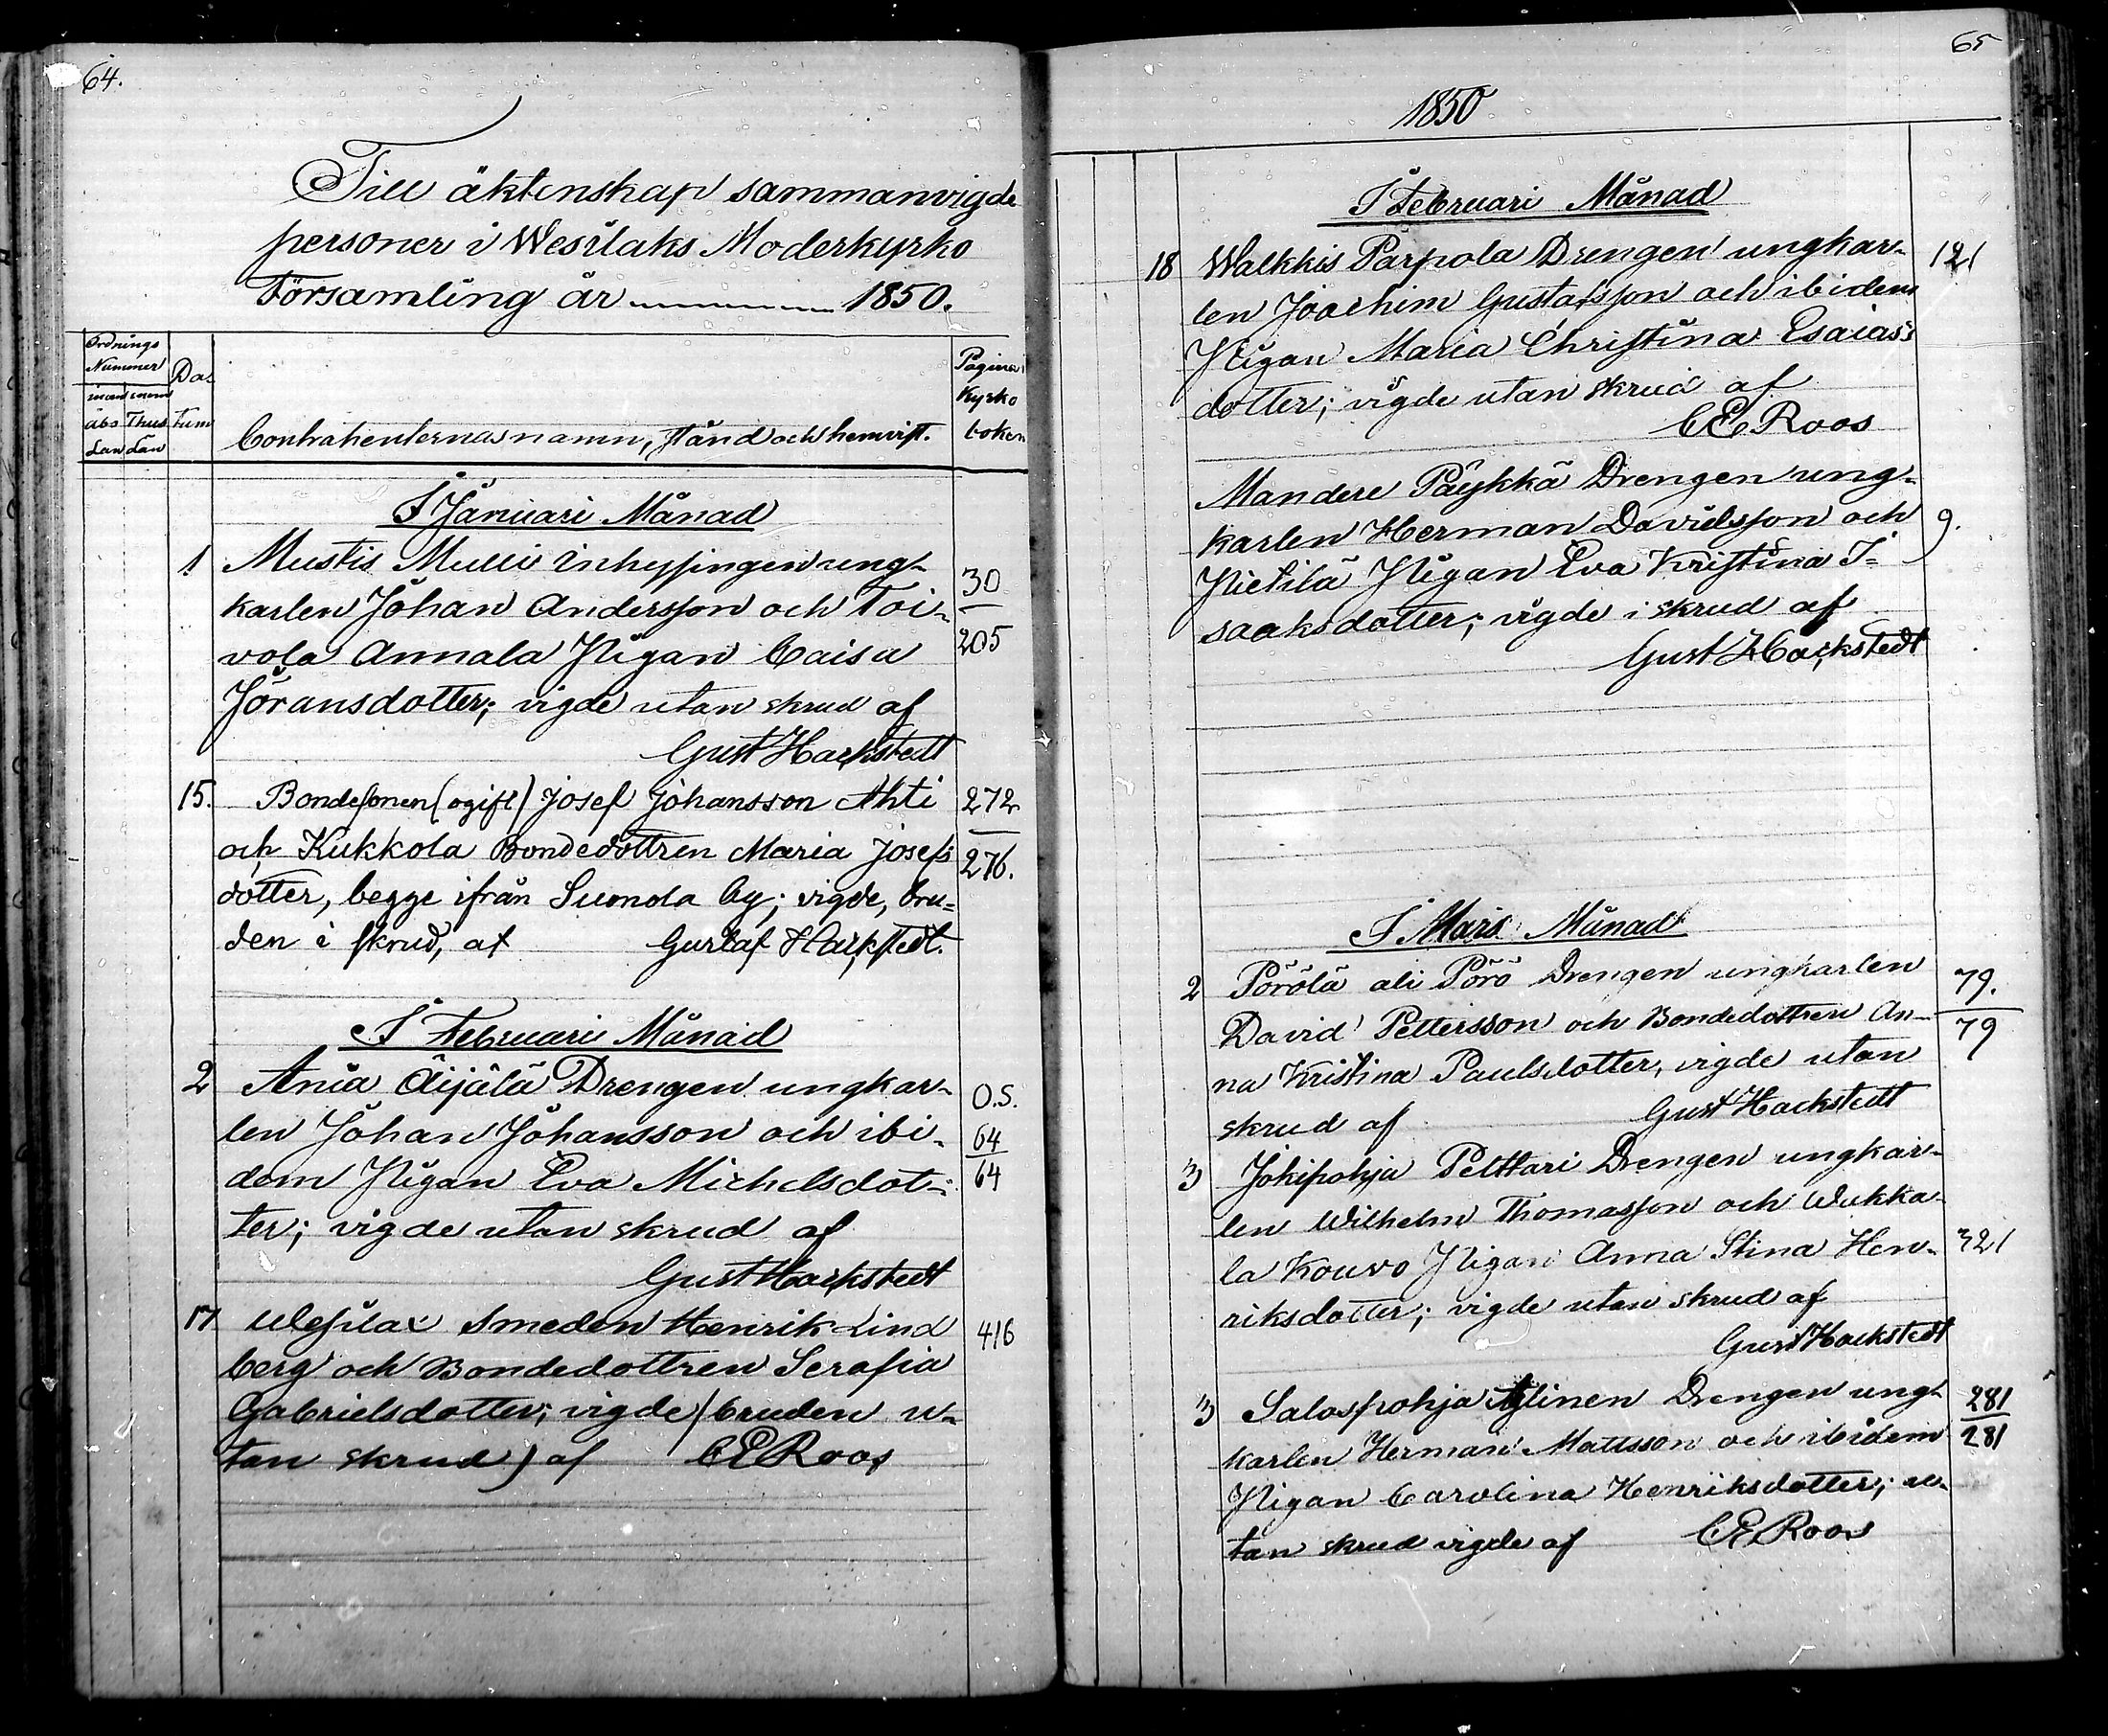 64.
Till äktenskap sammanvigde
personer i Wesilaks Moderkyrko
Församling år 1850.
Ordnings
Nummer
Da-
tum
Contrahenternas namn, stånd och hemvist.
Pagina i
Kyrko
boken
I Januari Månad
1 Mustis Mulli Inhysingen ung-
karlen Johan Andersson och Toi-
vola Annala Pigan Caisa
Jöransdotter; vigde utan skrud af
Gust Hackstedt
30
205
15. Bondesonen (ogift) Josef Johansson Ahti
och Kukkola Bondedottren Maria Josefs
dotter, begge ifrån Suomela by; vigde, bru=
den i skrud, af Gustaf Hackstedt.
272
276.
I Februari Månad
2 Ania Äijälä Drengen ungkar-
len Johan Johansson och ibi-
dem Pigan Eva Michelsdot-
ter; vigde utan skrud af
Gust Hackstedt
O.S.
64
64
17 Wesilax Smeden Henrik Lind
berg och Bondedottren Serafia
Gabrielsdotter; vigde (bruden u-
tan skrud) af C E Roos
416
65
1850
I Februari Månad
18 Walkkis Parpola Drengen ungkar-
len Joachim Gustafsson och ibidem
Pigan Maria Christina Esaias
dotter; vigde utan skrud af
C E Roos
121
Mandere Päykkä Drengen ung-
karlen Herman Davidsson och
Pietilä Pigan Eva Kristina I-
saaksdotter; vigde i skrud af
Gust Hackstedt
9.
I Mars Månad
2 Pörölä ali Pörö Drengen ungkarlen
David Pettersson och Bondedottren An-
na Kristina Paulsdotter, vigde utan
skrud af Gust Hackstedt
79.
79
3 Jokipohja Pelttari Drengen ungkar-
len Wilhelm Thomasson och Wukka-
la Kouvo Pigan Anna Stina Hen-
riksdotter; vigde utan skrud af
Gust Hackstedt
321
3 Salospohja Drengen ung-
karlen Herman Mattsson och ibidem
Pigan Carolina Henriksdotter; u-
tan skrud vigde af C E Roos
281
281